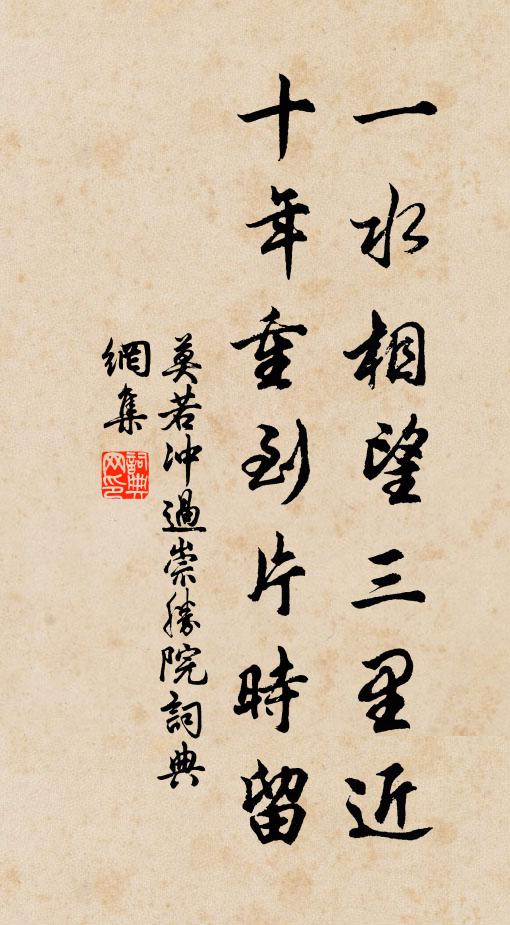 一水相望三里近
十年重到片時留
莫若冲過崇勝院詞典
網集
詞典网印